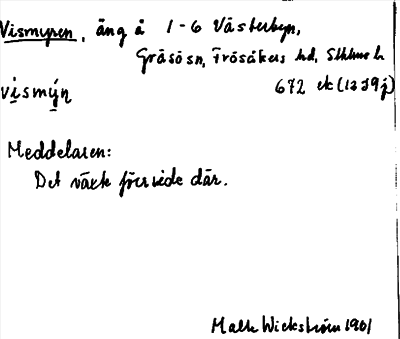 Vismyren, äng å 1-6 Västerbyn,
Gräsö sn, Frösåkers hd, Sthlms l.
vismýn 672 ek (13 J9j)
Meddelaren:
Det växte förr vide där.
Malte Wickström 1901